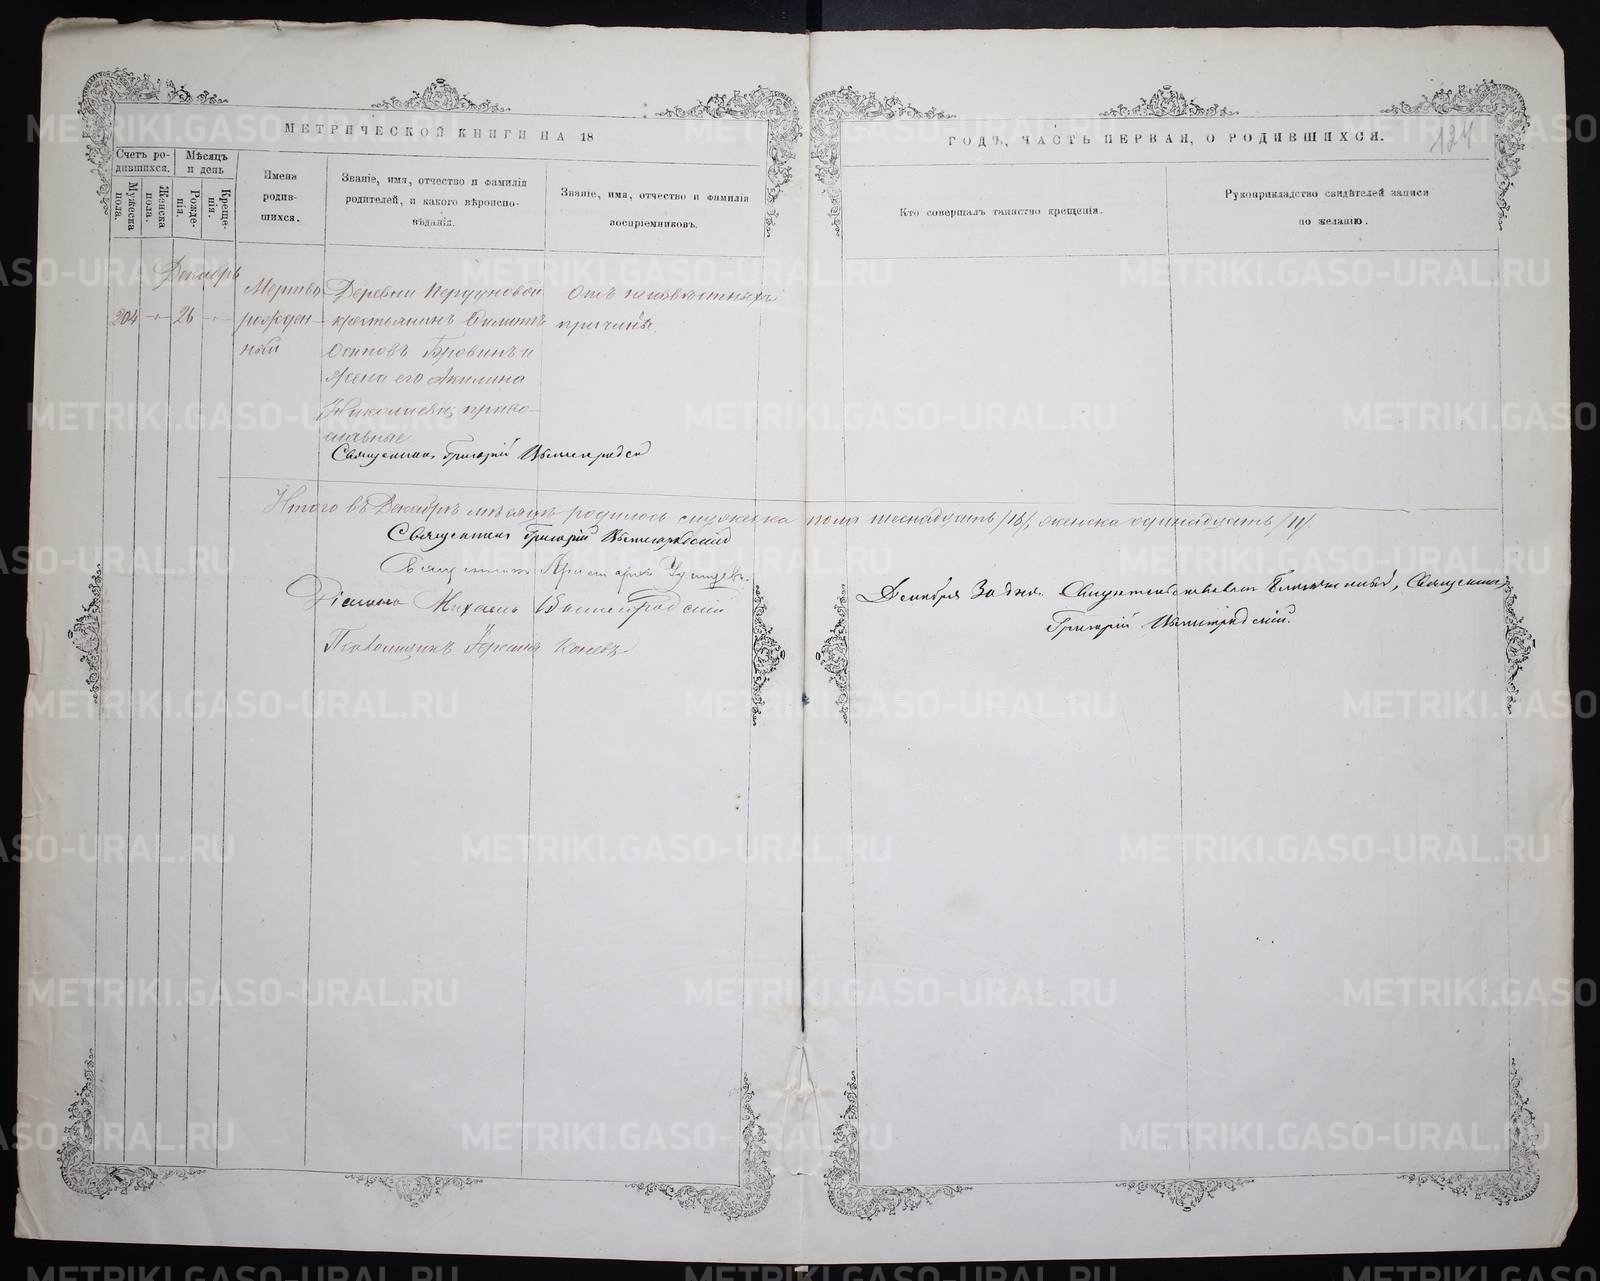 МЕТРИЧЕСКОЙ КНИГИ НА 18
ГОДЪ, ЧАСТЬ ПЕРВАЯ, О РОДИВШИХСЯ.
124
Счетъ ро-
дившихся.
Мужеска
пола.
Женска
пола.
Мѣсяцъ
и день
Рожде-
нія.
Креще-
нія.
Имена
родив-
шихся.
Званіе, имя, отчество и фамилія
родителей, и какого вѣроиспо-
вѣданія.
Званіе, имя, отчество и фамилія
воспріемниковъ.
Кто совершалъ таинство крещенія.
Рукоприкладство свидѣтелей записи
по желанію.
Декабрь
204 26
Мертво
рожден-
ный
Деревни
крестьянинъ
Осиповъ и
жена его Акилина
Николаева, право-
славные
Отъ неизвѣстныхъ
причинъ.
Священникъ Григорій
Итого въ Декабрѣ мѣсяцѣ родилось мужеска пола шеснадцать /16/, женска одинадцать /11/.
Священникъ Григорій Вышеградскій
Священникъ
Діаконъ Михаилъ Вышеградскій
Псаломщикъ Коневъ.
Декабря 30 дня. Свидетельствовалъ Благочинный, Священникъ
Григорій Вышеградскій.
METRIKI.GASO-URAL.RU